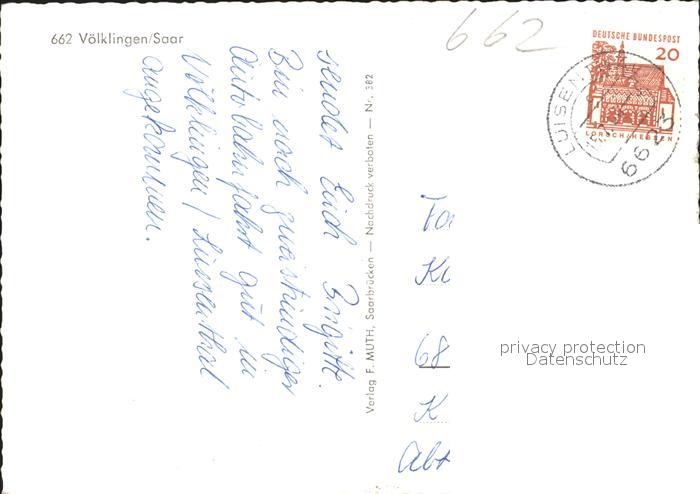 662 Völklingen/Saar
662
DEUTSCHE BUNDESPOST
20
LORSCH/HESSEN
LUISEN
6623
sendet Euch Brigitte.
Bin nach zweistündiger
Autobahnfahrt gut in
Völklingen/Luisenthal
angekommen.
Verlag F. MUTH, Saarbrücken — Nachdruck verboten — Nr. 382
Fa
68
K
Abt
privacy protection
Datenschutz